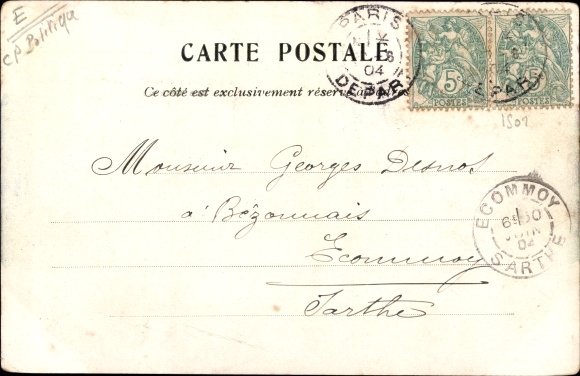 E
CP Politiqa
CARTE POSTALE
Ce côté est exclusivement réservé à
PARIS
04
DEPART
5c
POSTES
POSTES
DEPART
1902
Monsieur Georges Desnos
à Bézonnais
Ecommoy
Sarthe
ECOMMOY
JUIN
04
SARTHE